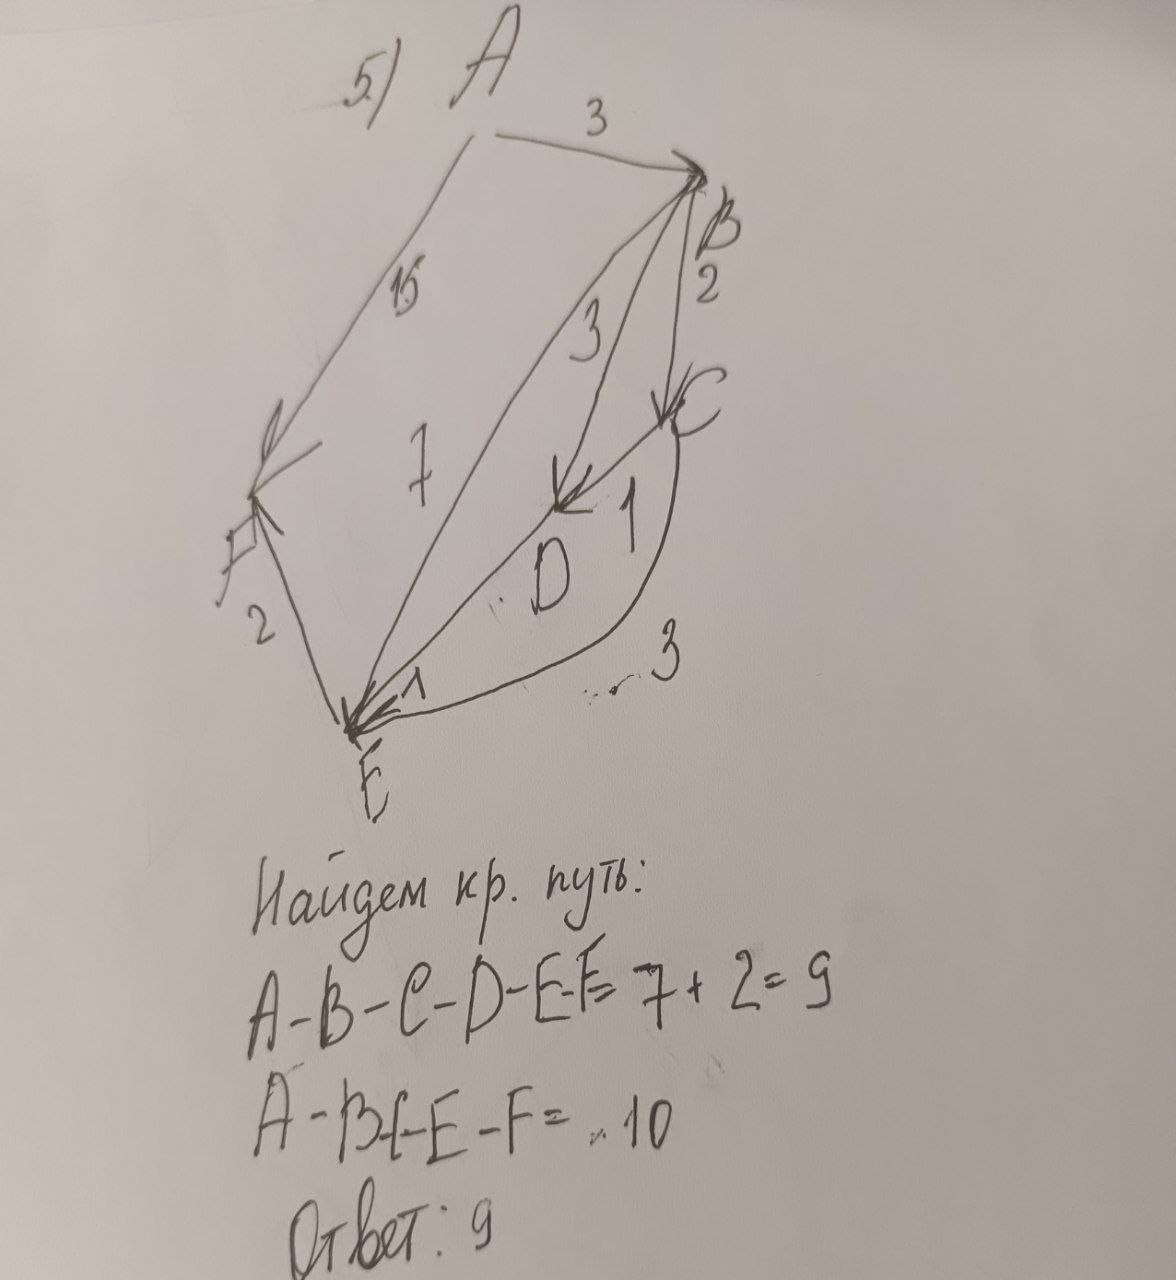 5.) A
3
B
15
2
3
C
7
1
F
D
2
3
1
E
Найдем кр. путь:
A-B-C-D-E-F= 7+ 2= 9
A-BC-E-F= 10
Ответ: 9